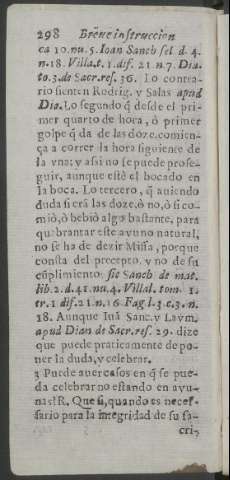 298 Brēue instruccion
ca 10. nu. 5. Ioan Sanch sel d. 4.
n. 18. Villa. t. 1. dif. 21. n. 7. Dia.
to. 3. de Sacr. res. 36. Lo contra-
rio sienten Rodrig. y Salas apud
Dia. Lo segundo q̃ desde el pri-
mer quarto de hora, ò primer
golpe q̃ da de las doze, comien-
ça a correr la hora siguiente de
la vna; y asi no se puede prose-
guir, aunque estè el bocado en
la boca. Lo tercero, q̃ auiendo
duda si erã las doze, ò no, ò si co-
miò, ò bebiò algo bastante, para
quebrantar este ayuno natural,
no se ha de dezir Missa, porque
consta del precepto, y no de su
cũplimiento: sic Sanch de mat.
lib. 2. d. 41. nu. 4. Villal. tom. 1.
tr. 1 dif. 21. n. 16. Fag. l. 3. c. 3. n.
18. Aunque Iuã Sanc. y Laym.
apud Dian de Sacr. res. 29. dize
que puede praticamente depo-
ner la duda, y celebrar.
3 Puede auer casos en q̃ se pue-
da celebrar no estando en ayu-
nas? R. Que sì, quando es neces-
sario para la integridad de su sa-
cri-